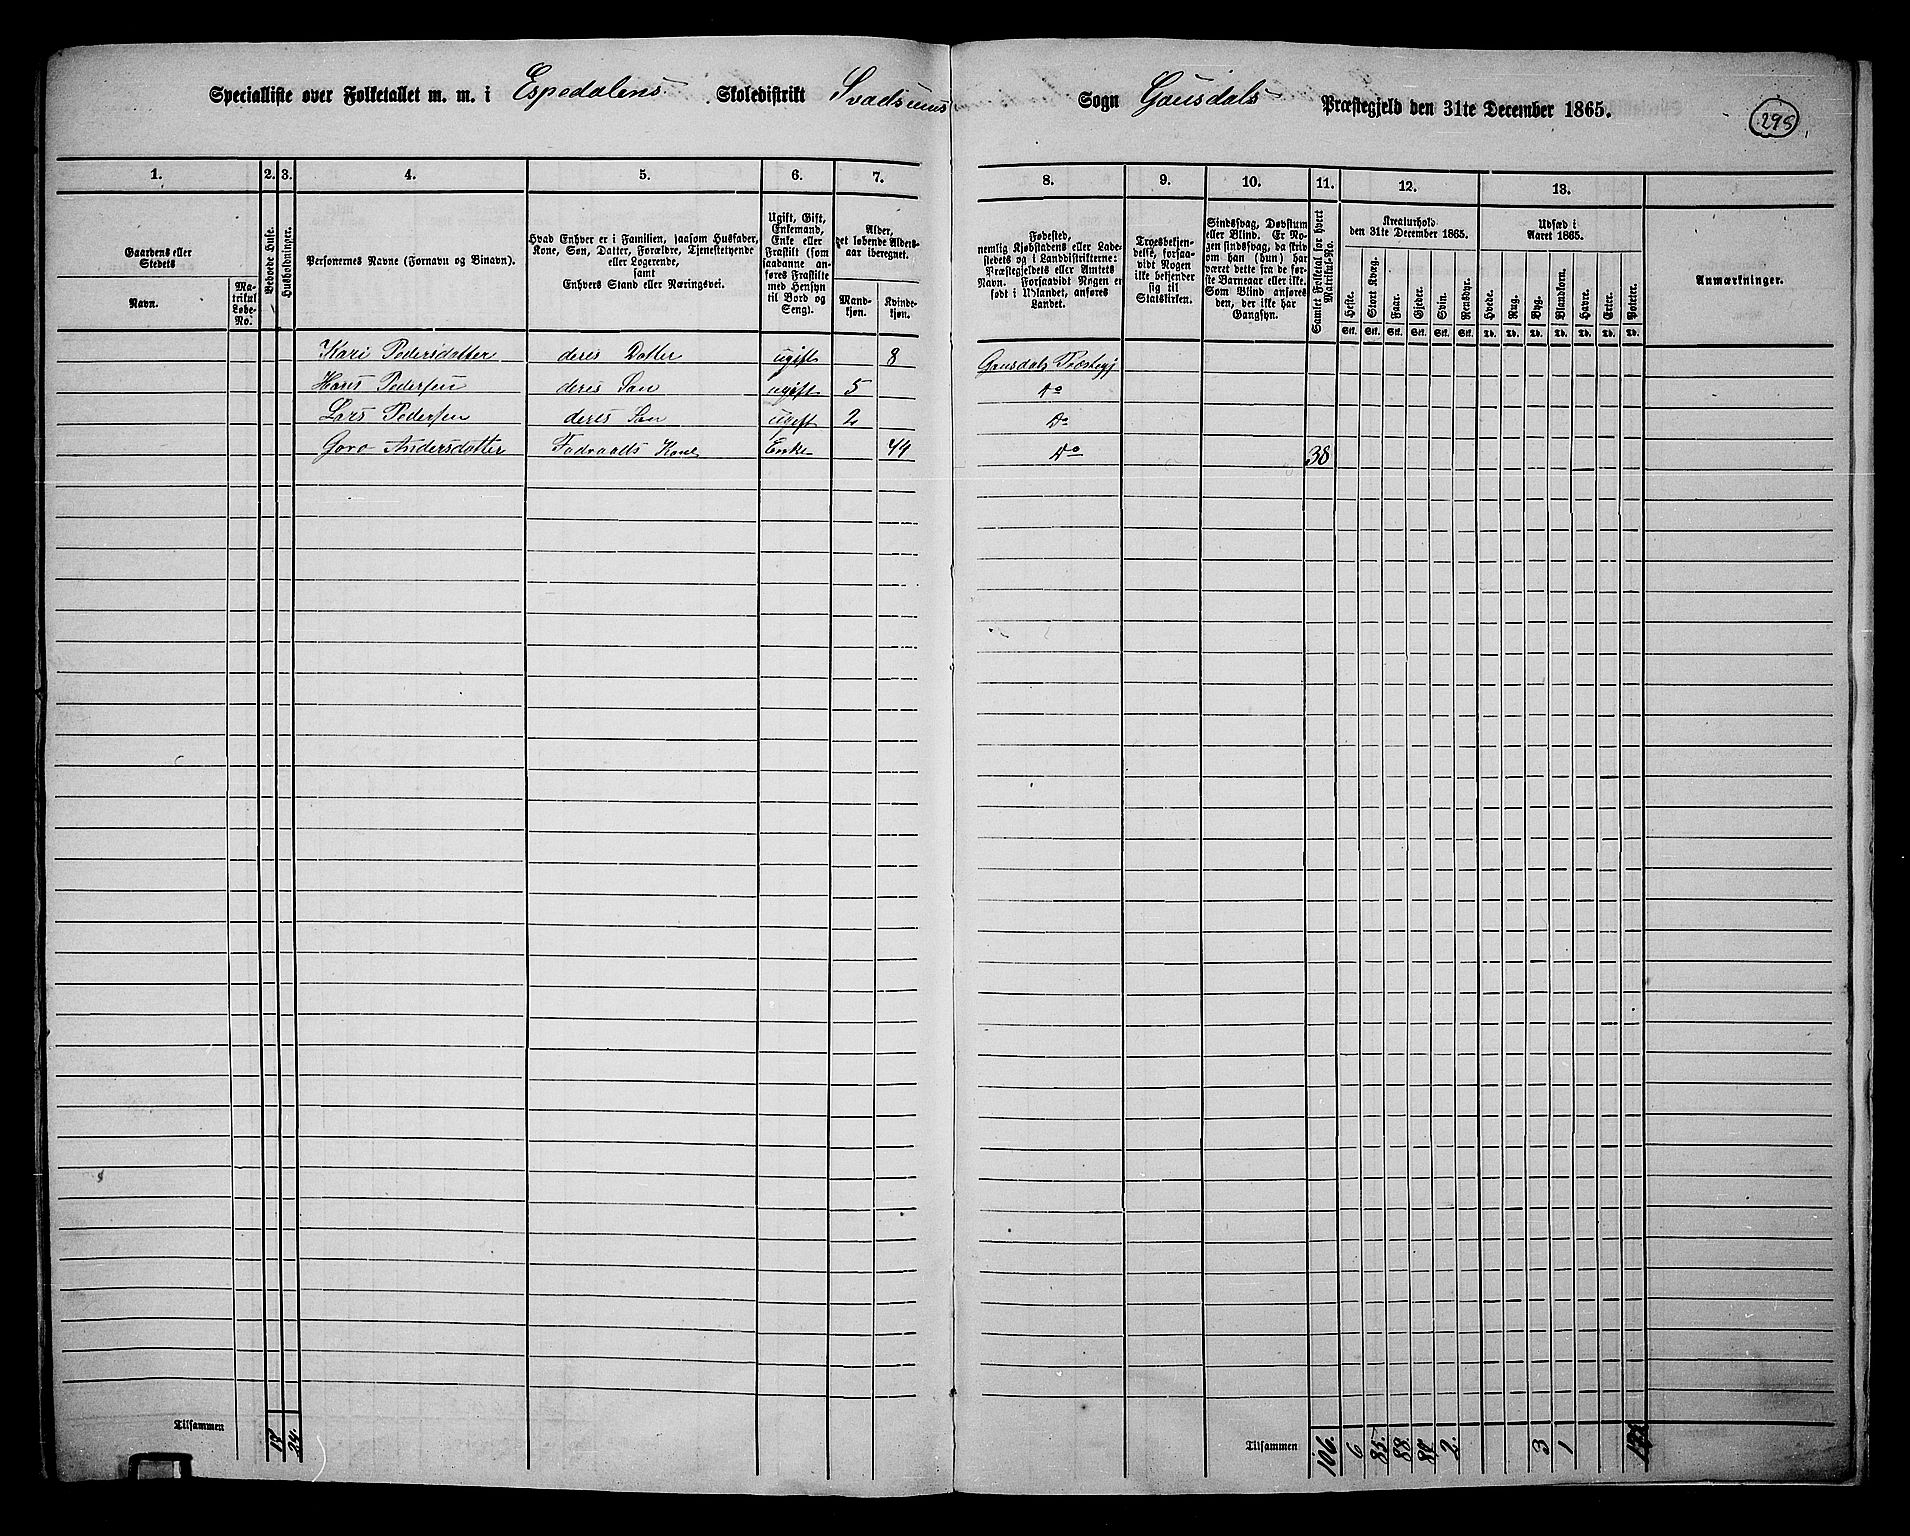 Specialliste over Folketallet m. m. i Espedalens Skoledistrikt Svadsums Sogn Gausdals Præstegjeld den 31te December 1865.
295
1. 2. 3. 4. 5. 6. 7. 8. 9. 10. 11. 12. 13.
Gaardens eller Stedets
Navn.
Matrikul Løbe-No.
Beboede Huse.
Husholdninger.
Personernes Navne (Fornavn og Binavn).
Hvad Enhver er i Familien, saasom Husfader, Kone, Søn, Datter, Forældre, Tjenestetyende eller Logerende, samt Enhvers Stand eller Næringsvei.
Ugift, Gift, Enkemand, Enke eller Fraskilt (som saadanne anføres Fraskilte med Hensyn til Bord og Seng).
Alder, det løbende Aldersaar iberegnet.
Mandkjøn.
Kvindekjøn.
Fødested, nemlig Kjøbstadens eller Ladestedets og i Landdistrikterne: Præstegjeldets eller Amtets Navn. Forsaavidt Nogen er født i Udlandet, anføres Landet.
Troesbekjendelse, forsaavidt Nogen ikke bekjender sig til Statskirken.
Sindssvag, Døvstum eller Blind. Er Nogen sindssvag, da skrives om han (hun) har været dette fra de første Barneaar eller ikke. Som Blind anføres den, der ikke har Gangsyn.
Samlet Folketal for hvert Matrikul-No.
Kreaturhold den 31te December 1865.
Heste. Stort Kvæg. Faar. Gjeder. Svin. Rensdyr.
Stk. Stk. Stk. Stk. Stk. Stk.
Udsæd i Aaret 1865.
Hvede. Rug. Byg. Blandkorn. Havre. Erter. Poteter.
Td. Td. Td. Td. Td. Td. Td.
Anmærkninger.
Kari Pedersdatter deres Datter ugift 8 Gausdals Præstegj
Hans Pedersen deres Søn ugift 5 do
Lars Pedersen deres Søn ugift 2 do
Goro Andersdatter Kone Enke 44 do 38
Tilsammen 24.
Tilsammen 106. 6 85. 88. 2. 3 1